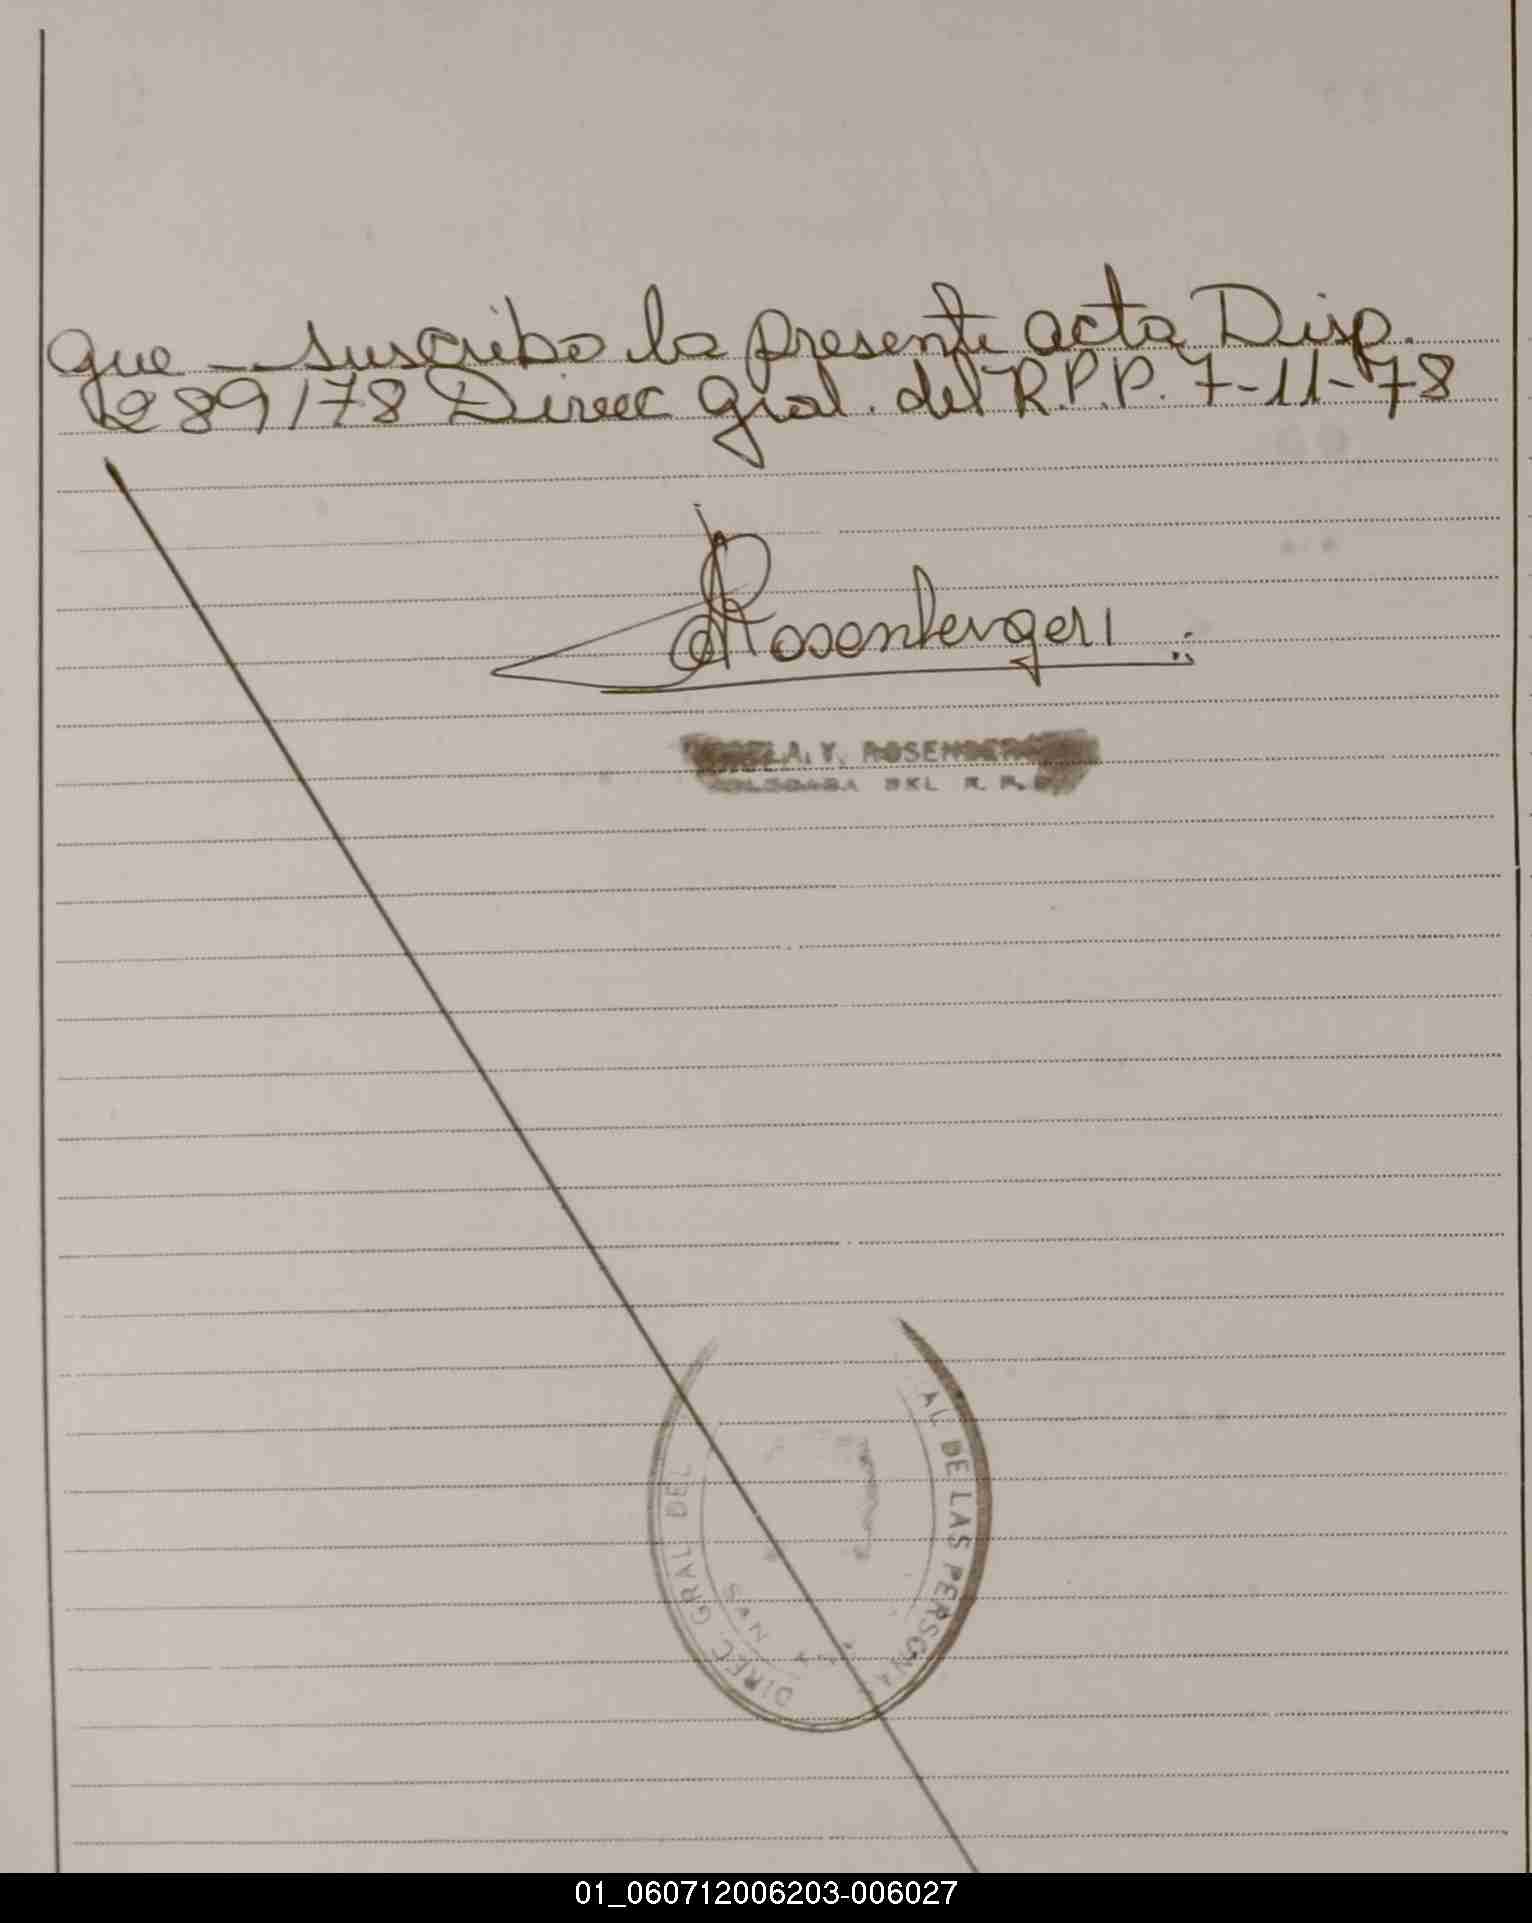 que suscribo la presente acta Disp.
289/78 Direcc Gral. del R.P.P. 7-11-78
Rosenberger
A. Y. ROSENBERG
DEL R. P.
DIREC. GRAL DEL
AL DE LAS PERSONAS
SAN
01_060712006203-006027